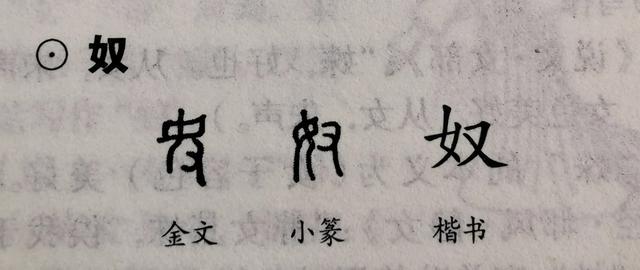 ⊙ 奴
奴 奴 奴
金文 小篆 楷书